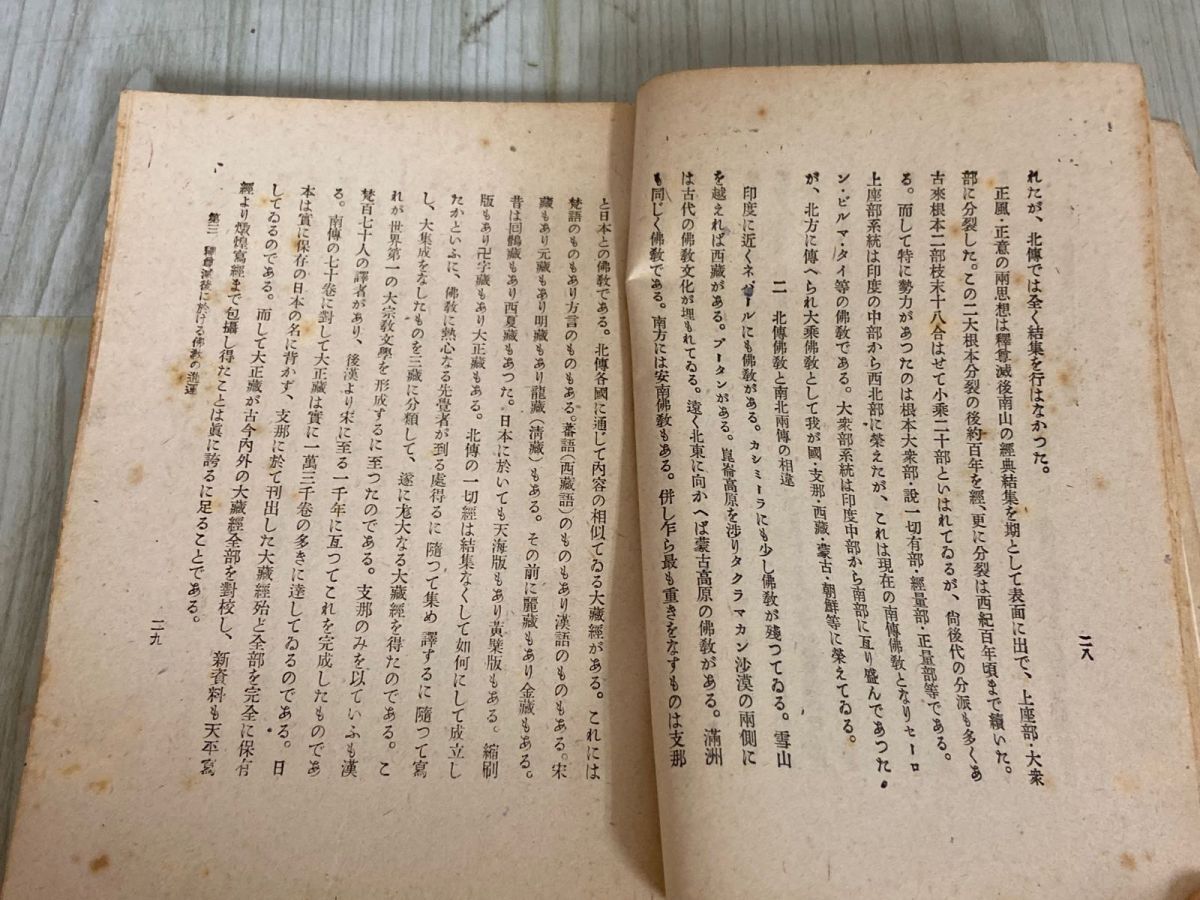 二八
れたが、北傳では全く結集を行はなかつた。
正風・正意の兩思想は釋尊滅後南山の經典結集を期として表面に出で、上座部・大衆
部に分裂した。この二大根本分裂の後約百年を經、更に分裂は西紀百年頃まで續いた。
古來根本二部枝末十八合はせて小乘二十部といはれてゐるが、尙後代の分派も多くあ
る。而して特に勢力があつたのは根本大衆部・說一切有部・經量部・正量部等である。
上座部系統は印度の中部から西北部に榮えたが、これは現在の南傳佛敎となりセーロ
ン・ビルマ・タイ等の佛敎である。大衆部系統は印度中部から南部に亙り盛んであつた
が、北方に傳へられ大乘佛敎として我が國・支那・西藏・蒙古・朝鮮等に榮えてゐる。
二 北傳佛敎と南北兩傳の相違
印度に近くネパールにも佛敎がある。カシミーラにも少し佛敎が殘つてゐる。雪山
を越えれば西藏がある。ブータンがある。崑崙高原を涉りタクラマカン沙漠の兩側に
は古代の佛敎文化が埋もれてゐる。遠く北東に向かへば蒙古高原の佛敎がある。滿洲
も同じく佛敎である。南方には安南佛敎もある。併し乍ら最も重きをなすものは支那
と日本との佛敎である。北傳各國に通じて內容の相似てゐる大藏經がある。これには
梵語のものもあり方言のものもある。蕃語(西藏語)のものもあり漢語のものもある。宋
藏もあり元藏もあり明藏もあり龍藏(淸藏)もある。その前に麗藏もあり金藏もある。
昔は回鶻藏もあり西夏藏もあつた。日本に於いても天海版もあり黃檗版もある。縮刷
版もあり卍字藏もあり大正藏もある。北傳の一切經は結集なくして如何にして成立し
たかといふに、佛敎に熱心なる先覺者が到る處得るに隨つて集め譯するに隨つて寫
し、大集成をなしたものを三藏に分類して、遂に尨大なる大藏經を得たのである。こ
れが世界第一の大宗敎文學を形成するに至つたのである。支那のみを以ていふも漢
梵百七十人の譯者があり、後漢より宋に至る一千年に亙つてこれを完成したものであ
る。南傳の七十卷に對して大正藏は實に一萬三千卷の多きに達してゐるのである。日
本は實に保存の日本の名に背かず、支那に於て刊出した大藏經殆と全部を完全に保有
してゐるのである。而して大正藏が古今內外の大藏經全部を對校し、新資料も天平寫
經より燉煌寫經まで包攝し得たことは眞に誇るに足ることである。
第三 釋尊滅後に於ける佛敎の進運
二九